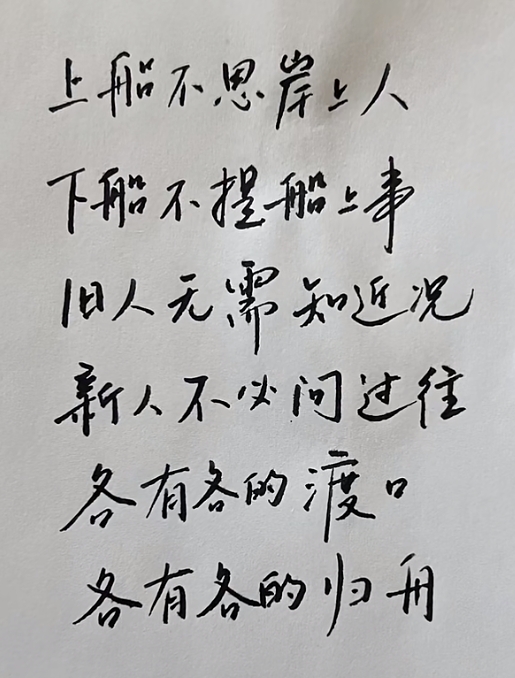 上船不思岸上人
下船不提船上事
旧人无需知近况
新人不必问过往
各有各的渡口
各有各的归舟